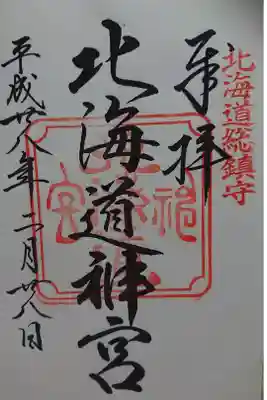 北海道総鎮守
奉拝
北海道神宮
平成廿八年 二月廿八日